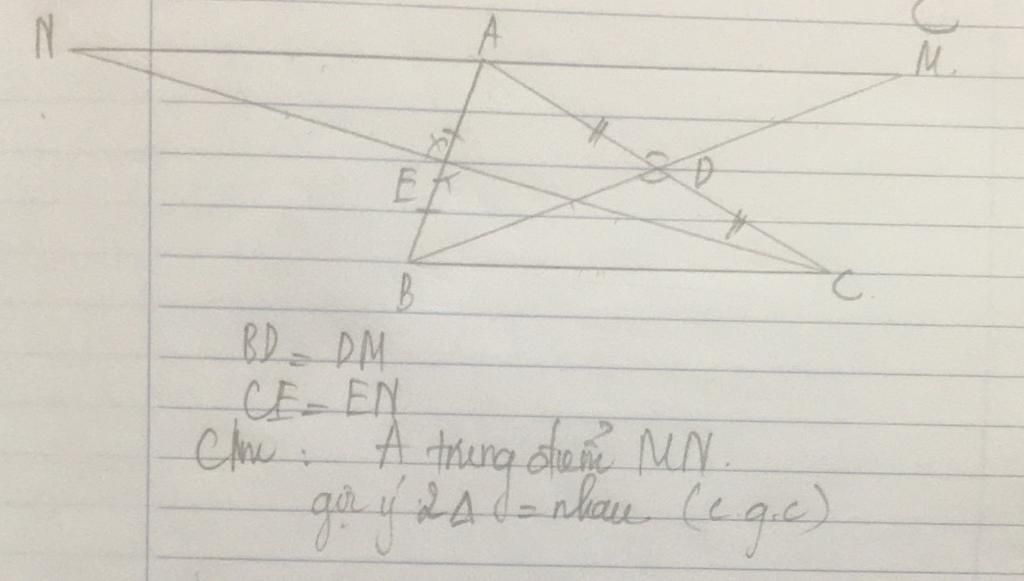 C
N A M.
E D
B C.
BD = DM
CE = EN
Cm : A trung điểm MN.
gợi ý 2Δ = nhau (c.g.c)